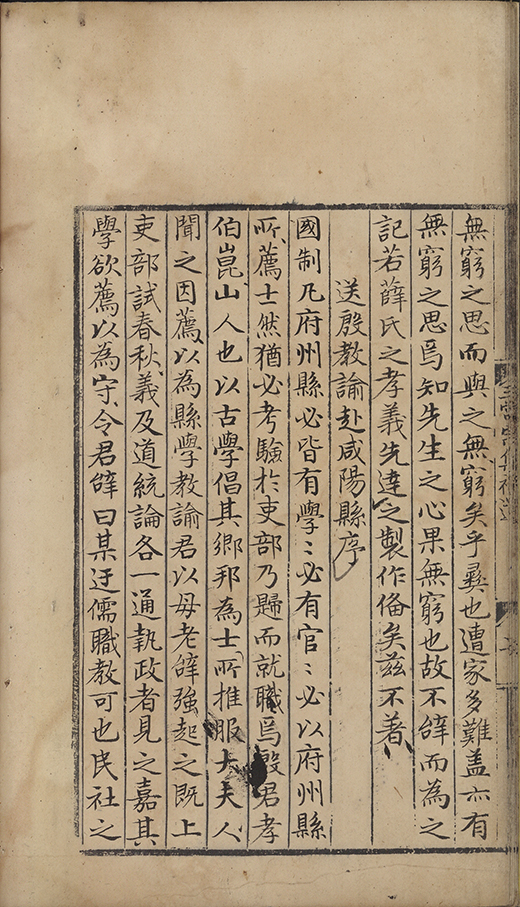 無窮之思而與之無窮矣乎彛也遭家多難盖亦有
無窮之思焉知先生之心果無窮也故不辤而為之
記若薛氏之孝義先達之製作俻矣兹不着
送殷教諭赴咸陽縣序
國制凡府州縣必皆有學〻必有官〻必以府州縣
所薦士然猶必考驗於吏部乃歸而就職焉殷君孝
伯崑山人也以古學倡其鄉邦為士所推服大夫人
聞之因薦以為縣學教諭君以母老辤強起之既上
吏部試春秋義及道統論各一通執政者見之嘉其
學欲薦以為守令君辤曰某迂儒職教可也民社之